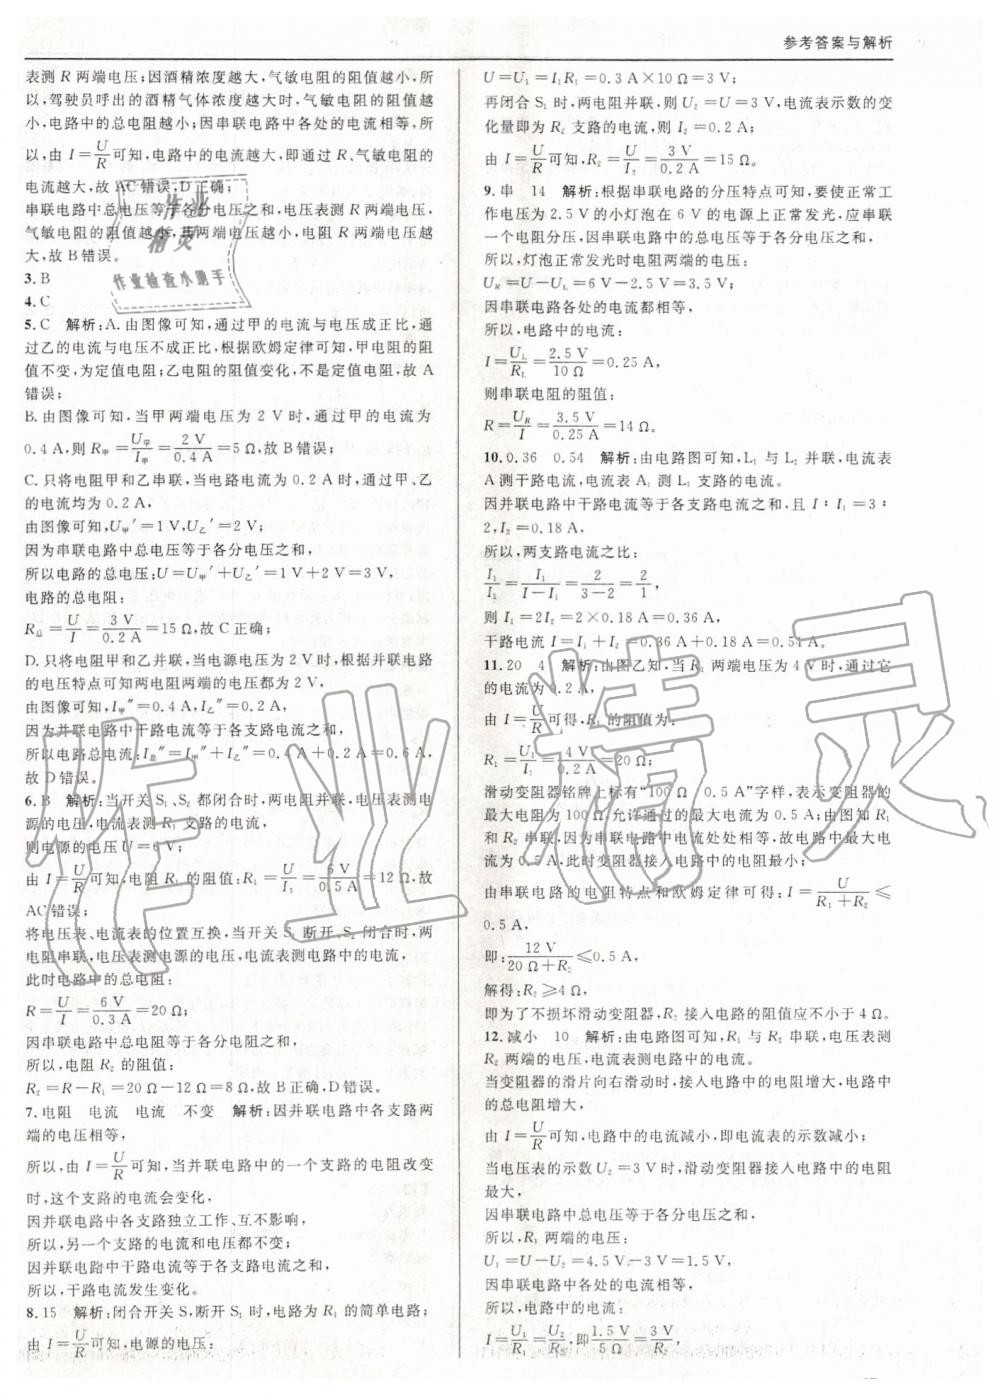 参考答案与解析
表测 R 两端电压;因酒精浓度越大,气敏电阻的阻值越小,所
以,驾驶员呼出的酒精气体浓度越大时,气敏电阻的阻值越
小,电路中的总电阻越小;因串联电路中各处的电流相等,所
以,由 I=U/R 可知,电路中的电流越大,即通过 R、气敏电阻的
电流越大,故 AC 错误,D 正确;
串联电路中总电压等于各分电压之和,电压表测 R 两端电压,
气敏电阻的阻值越小,其两端电压越小,电压表示数越大,
越大,故 B 错误。
3. B
4. C
5. C 解析:A. 由图像可知,通过甲的电流与电压成正比,通
过乙的电流与电压不成正比,根据欧姆定律可知,甲电阻的阻
值不变,为定值电阻;乙电阻的阻值变化,不是定值电阻,故 A
错误;
B. 由图像可知,当甲两端电压为 2 V 时,通过甲的电流为
0.4 A,则 R甲=U甲/I甲=2 V/0.4 A=5 Ω,故 B 错误;
C. 只将电阻甲和乙串联,当电路电流为 0.2 A 时,通过甲、乙
的电流均为 0.2 A,
由图像可知,U甲′=1 V,U乙′=2 V;
因为串联电路中总电压等于各分电压之和,
所以电路的总电压:U=U甲′+U乙′=1 V+2 V=3 V,
电路的总电阻:
R总=U/I=3 V/0.2 A=15 Ω,故 C 正确;
D. 只将电阻甲和乙并联,当电源电压为 2 V 时,根据并联电路
的电压特点可知两电阻两端的电压都为 2 V,
由图像可知,I甲″=0.4 A,I乙″=0.2 A,
因为并联电路中干路电流等于各支路电流之和,
所以电路总电流:I总″=I甲″+I乙″=0.4 A+0.2 A=0.6 A,
故 D 错误。
6. B 解析:当开关 S₁、S₂ 都闭合时,两电阻并联,电压表测电
源的电压,电流表测 R₁ 支路的电流,
则电源的电压 U=6 V;
由 I=U/R 可知,电阻 R₁ 的阻值:R₁=U/I₁=6 V/0.5 A=12 Ω,故
AC 错误;
将电压表、电流表的位置互换,当开关 S₁ 断开、S₂ 闭合时,两
电阻串联,电压表测电源的电压,电流表测电路中的电流,
此时电路中的总电阻:
R=U/I=6 V/0.3 A=20 Ω;
因串联电路中总电阻等于各分电阻之和,
所以,电阻 R₂ 的阻值:
R₂=R−R₁=20 Ω−12 Ω=8 Ω,故 B 正确,D 错误。
7. 电阻 电流 电流 不变 解析:因并联电路中各支路两
端的电压相等,
所以,由 I=U/R 可知,当并联电路中的一个支路的电阻改变
时,这个支路的电流会变化,
因并联电路中各支路独立工作、互不影响,
所以,另一个支路的电流和电压都不变;
因并联电路中干路电流等于各支路电流之和,
所以,干路电流发生变化。
8. 15 解析:闭合开关 S,断开 S₁ 时,电路为 R₁ 的简单电路;
由 I=U/R 可知,电源的电压:
U=U₁=I₁R₁=0.3 A×10 Ω=3 V;
再闭合 S₁ 时,两电阻并联,则 U₂=U=3 V,电流表示数的变
化量即为 R₂ 支路的电流,则 I₂=0.2 A;
由 I=U/R 可知,R₂=U₂/I₂=3 V/0.2 A=15 Ω。
9. 串 14 解析:根据串联电路的分压特点可知,要使正常工
作电压为 2.5 V 的小灯泡在 6 V 的电源上正常发光,应串联
一个电阻分压,因串联电路中总电压等于各分电压之和,
所以,灯泡正常发光时电阻两端的电压:
UR=U−UL=6 V−2.5 V=3.5 V;
因串联电路各处的电流都相等,
所以,电路中的电流:
I=UL/RL=2.5 V/10 Ω=0.25 A,
则串联电阻的阻值:
R=UR/I=3.5 V/0.25 A=14 Ω。
10. 0.36 0.54 解析:由电路图可知,L₁ 与 L₂ 并联,电流表
A 测干路电流,电流表 A₁ 测 L₁ 支路的电流。
因并联电路中干路电流等于各支路电流之和,且 I∶I₁=3∶
2,I₂=0.18 A,
所以,两支路电流之比:
I₁/I₂=I₁/(I−I₁)=2/(3−2)=2/1,
则 I₁=2I₂=2×0.18 A=0.36 A,
干路电流 I=I₁+I₂=0.36 A+0.18 A=0.54 A。
11. 20 4 解析:由图乙知,当 R₁ 两端电压为 4 V 时,通过它
的电流为 0.2 A,
由 I=U/R 可得,R₁ 的阻值为:
R₁=U₁/I₁=4 V/0.2 A=20 Ω;
滑动变阻器铭牌上标有“100 Ω 0.5 A”字样,表示变阻器的
最大电阻为 100 Ω,允许通过的最大电流为 0.5 A;由图知 R₁
和 R₂ 串联,因为串联电路中电流处处相等,故电路中最大电
流为 0.5 A,此时变阻器接入电路中的电阻最小;
由串联电路的电阻特点和欧姆定律可得:I=U/(R₁+R₂)≤
0.5 A,
即:12 V/(20 Ω+R₂)≤0.5 A,
解得:R₂≥4 Ω,
即为了不损坏滑动变阻器,R₂ 接入电路的阻值应不小于 4 Ω。
12. 减小 10 解析:由电路图可知,R₁ 与 R₂ 串联,电压表测
R₂ 两端的电压,电流表测电路中的电流。
当变阻器的滑片向右滑动时,接入电路中的电阻增大,电路中
的总电阻增大,
由 I=U/R 可知,电路中的电流减小,即电流表的示数减小;
当电压表的示数 U₂=3 V 时,滑动变阻器接入电路中的电阻
最大,
因串联电路中总电压等于各分电压之和,
所以,R₁ 两端的电压:
U₁=U−U₂=4.5 V−3 V=1.5 V,
因串联电路中各处的电流相等,
所以,电路中的电流:
I=U₁/R₁=U₂/R₂,即1.5 V/5 Ω=3 V/R₂,
作业精灵
作业检查小助手
作业精灵